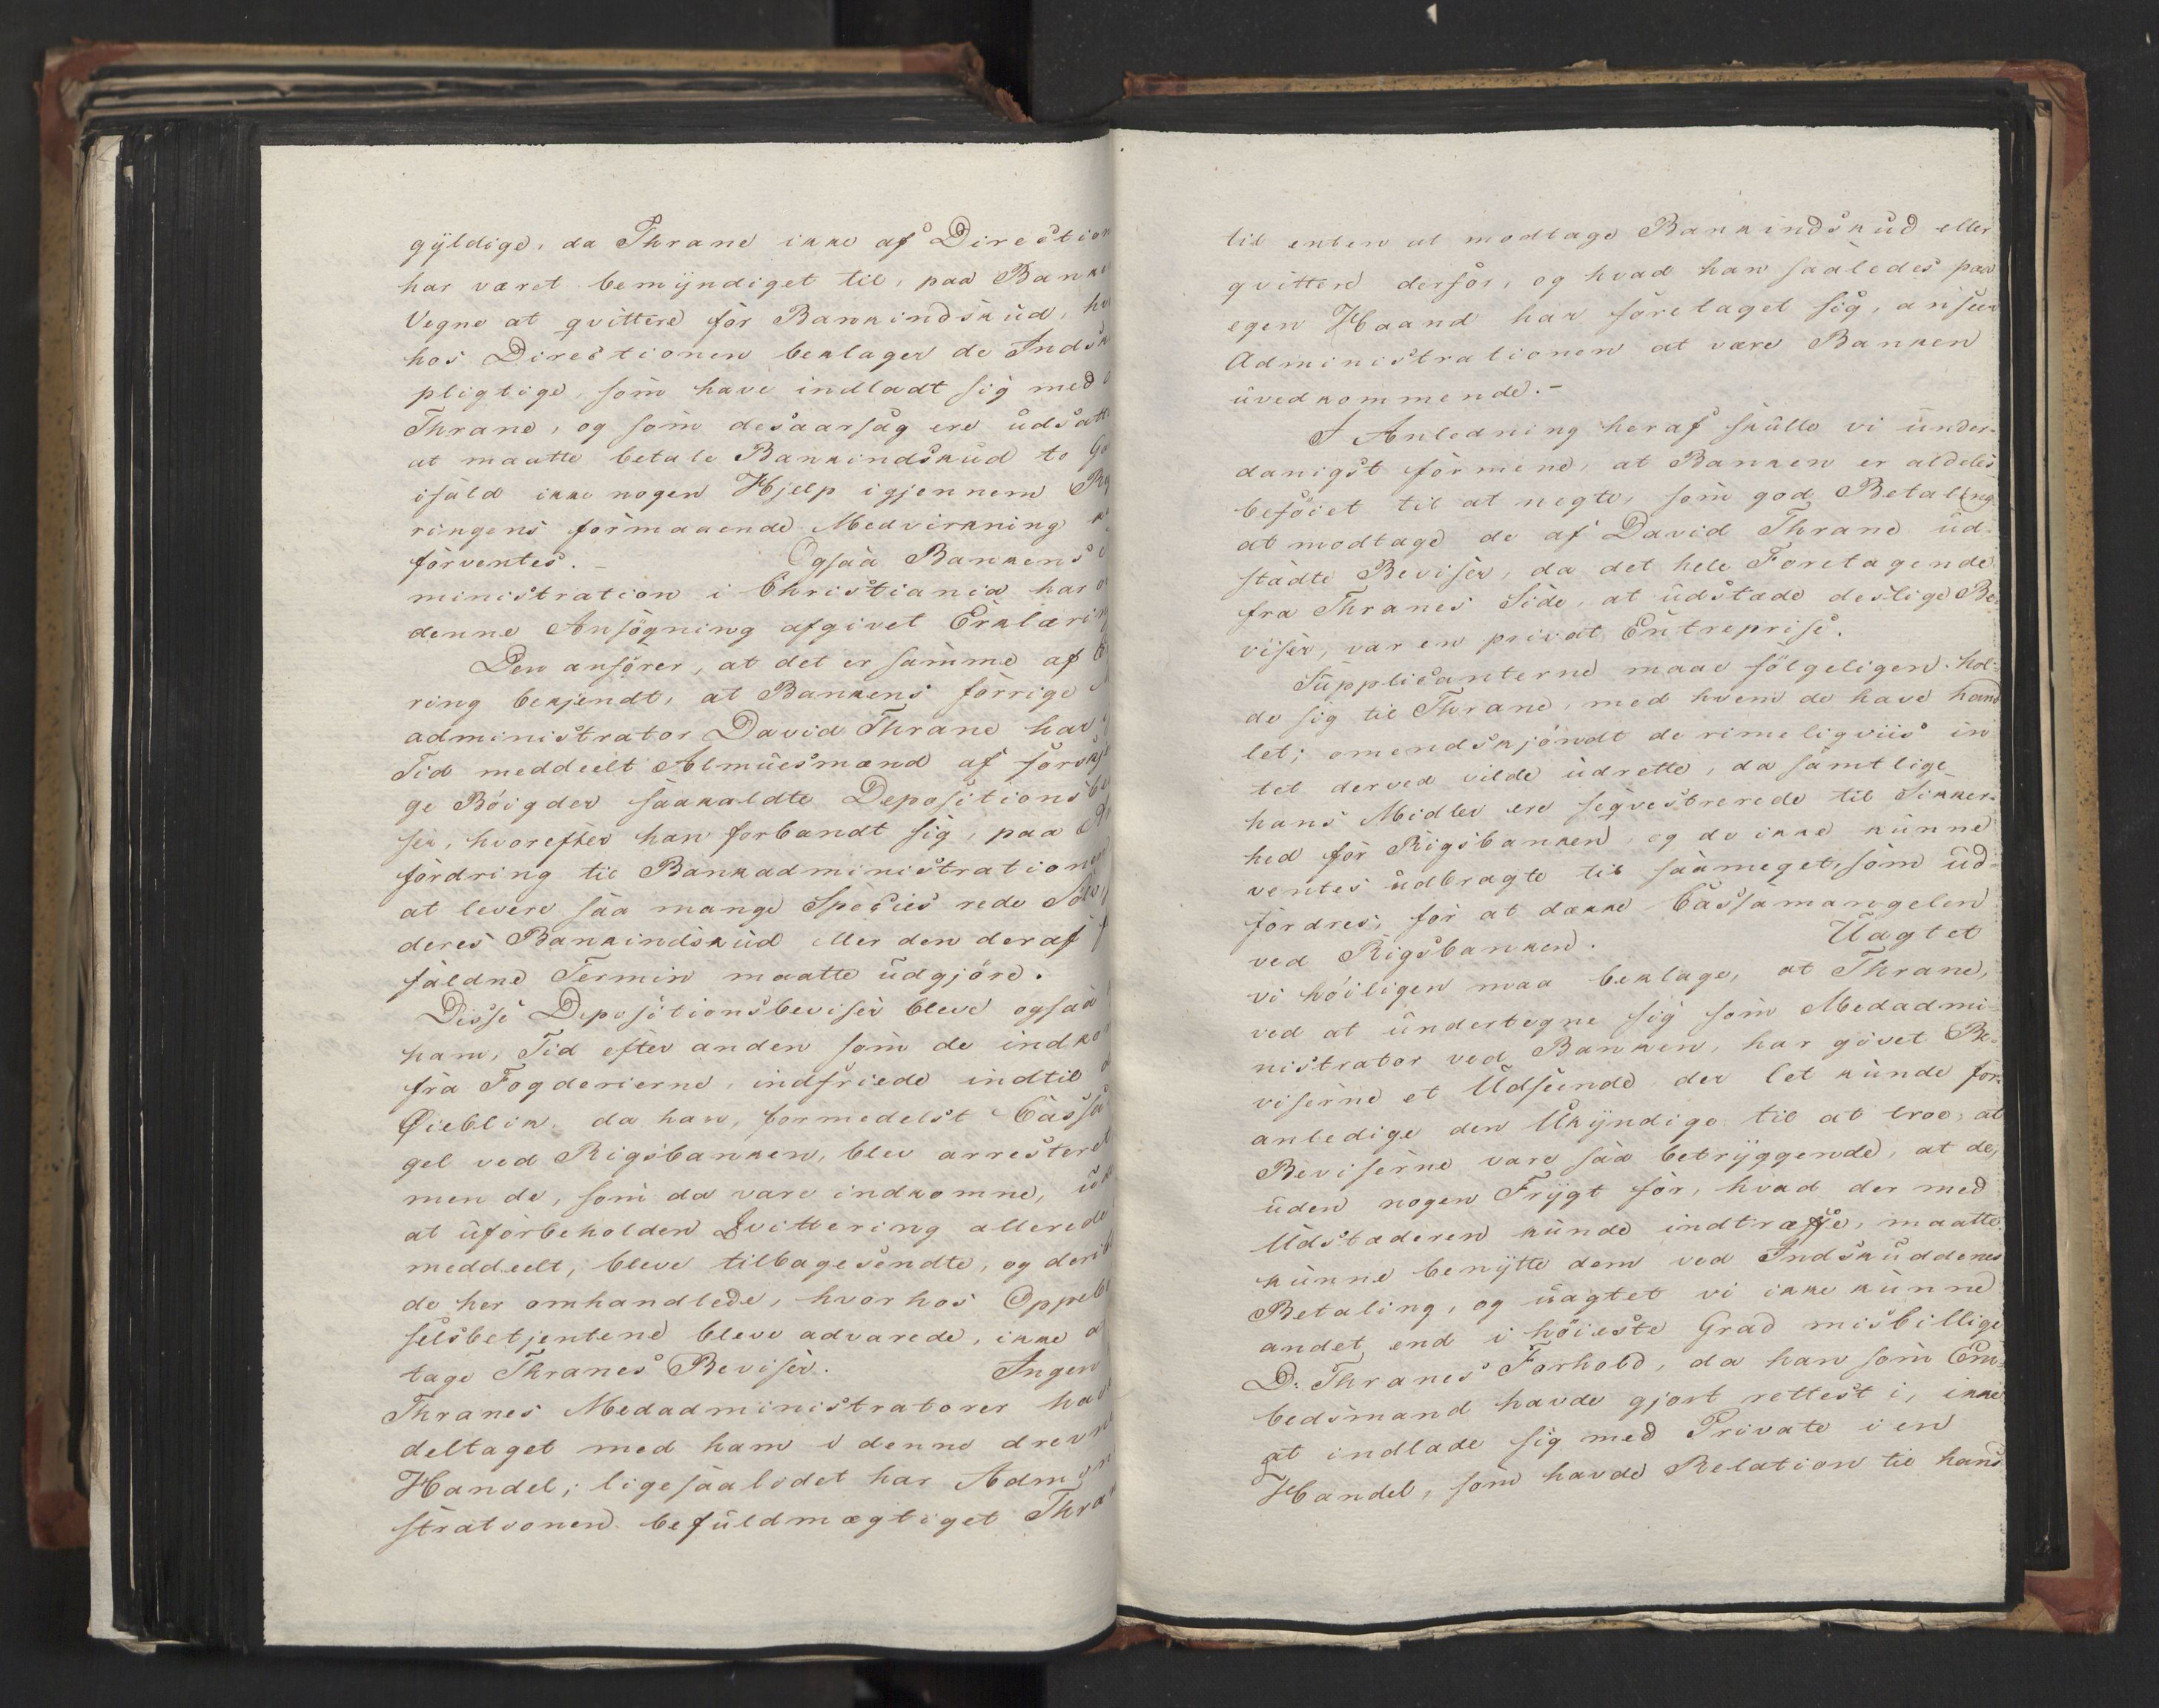 gyldige, da Thrane ikke af Direction
har været bemyndiget til, paa Bank
Vegne at qvittere for Bankindskud, hv
hos Directionen beklager de Indsk
pligtige, som have indladt sig med
Thrane, og som desaarsag ere udsatte
at maatte betale Bankindskud to Ga
ifald ikke nogen Hjelp igjennem Rg
ringens formaaende Medvirkning k
forventes. – Ogsaa Bankens
ministration i Christiania har o
denne Ansøgning afgivet Erklæring
Den anfører, at det er samme af
ring bekjendt, at Bankens forrige M
administrator David Thrane har
Tid meddeelt Almuesmænd af forskje
ge Bøigder saakaldte Depositionsbe
ser, hvorefter han forbandt sig, paa An
fordring til Bankadministrationen
at levere saa mange Species rede Sølv
deres Bankindskud eller den deraf f
faldne Termin maatte udgjøre.
Disse Depositionsbeviser bleve ogsaa
ham, Tid efter anden som de indkom
fra Fogderierne, indfriede indtil
Øieblik, da han, formedelst Cassa
gel ved Rigsbanken, blev arresteret
men de, som da vare indkomne, u
at uforbeholden Qvittering allerede
meddeelt, bleve tilbagesendte, og derib
de her omhandlede, hvorhos Oppeb
selsbetjentene bleve advarede, ikke a
tage Thranes Beviser. Ingen
Thranes Medadministratorer hav
deltaget med ham i denne drevne
Handel; ligesaalidet har Admini
strationen befuldmægtiget Thran
til enten at modtage Bankindskud eller
qvittere derfor, og hvad han saaledes paa
egen Haand har foretaget sig, anseer
Administrationen at være Banken
uvedkommende. –
I Anledning heraf skulle vi under-
danigst formene, at Banken er aldeles
beføiet til at negte, som god Betaling
at modtage de af David Thrane ud-
stædte Beviser, da det hele Foretagende
fra Thranes Side, at udstæde deslige Be-
viser, var en privat Entreprise.
Supplicanterne maae følgeligen hol-
de sig til Thrane, med hvem de have hand
let; omendskjøndt de rimeligviis in
tet derved vilde udrette, da samtlige
hans Midler ere seqvestrerede til Sikker-
hed for Rigsbanken, og de ikke kunne
ventes udbragte til saameget, som ud-
fordres, for at dække Cassamangelen
ved Rigsbanken. Uagtet
vi høiligen maa beklage, at Thrane,
ved at undertegne sig som Medadmi-
nistrator ved Banken, har givet Be-
viserne et Udseende der let kunde for-
anledige den Ukyndige til at troe, at
Beviserne vare saa betryggende, at de,
uden nogen Frygt for, hvad der med
Udstæderen kunde indtræffe, maatte
kunne benytte dem ved Indskuddenes
Betaling, og uagtet vi ikke kunne
andet, end i høieste Grad misbillige
D: Thranes Forhold, da han som Em-
bedsmand havde gjort rettest i, ikke
at indlade sig med Private i en
Handel, som havde Relation til hans